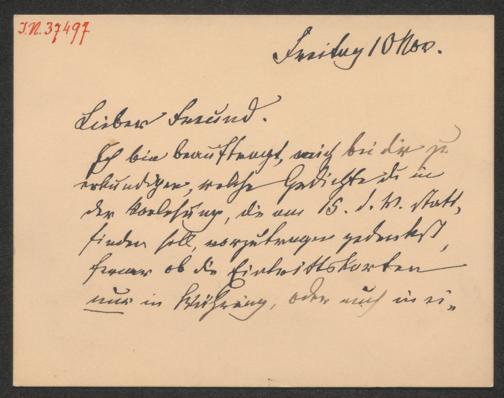 I.N. 37497
Freitag 10 Nov.
Lieber Freund.
Ich bin beauftragt, mich bei dir zu
erkundigen, welche Gedichte du in
der Vorlesung, die am 15. d. M. statt,
finden soll, vorzutragen gedenkst,
ferner ob die Eintrittskarten
nur in Währing, oder auch in ei-